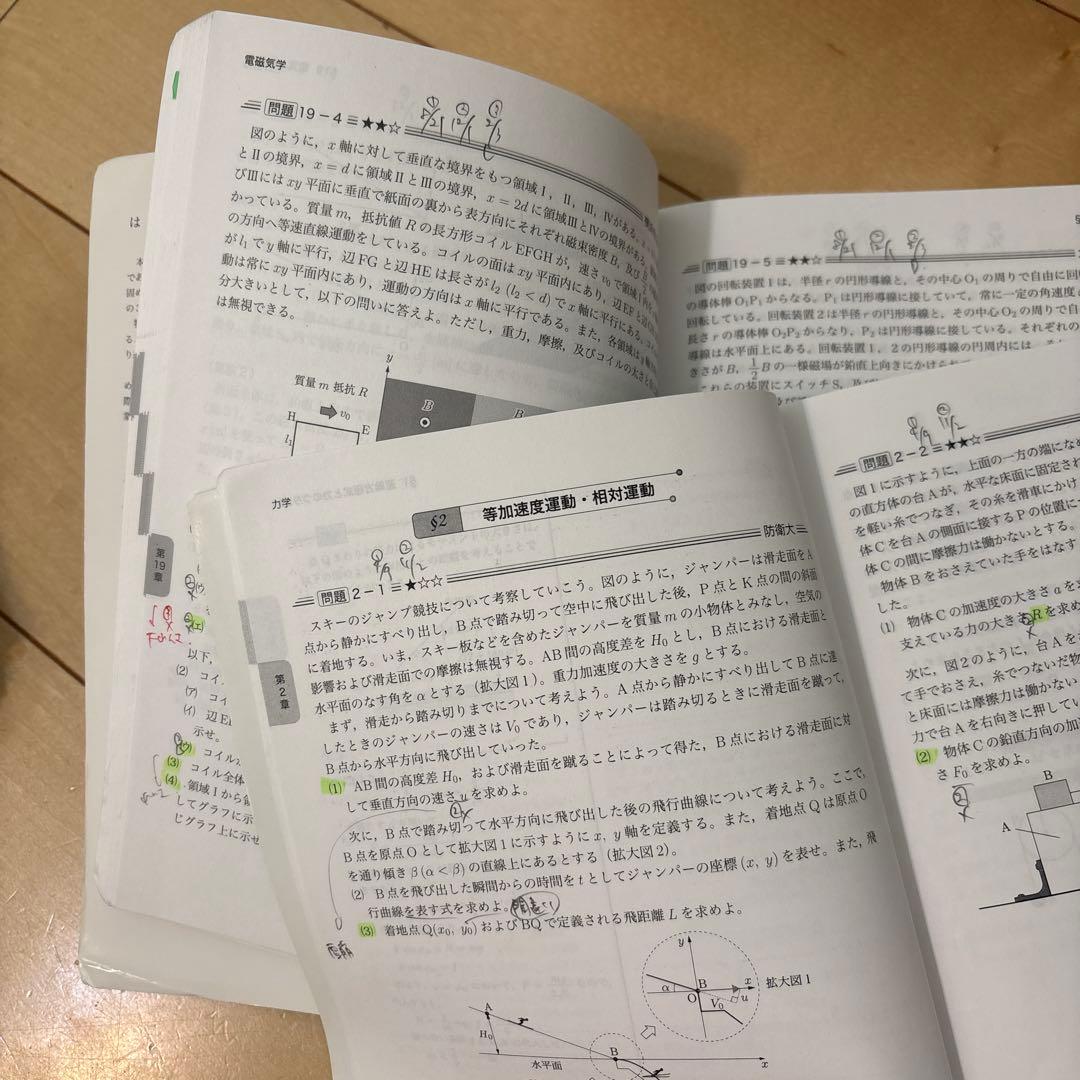 電磁気学
問題 19-4 ★★☆
図のように，x 軸に対して垂直な境界をもつ領域Ⅰ，Ⅱ，Ⅲ，Ⅳがある。
とⅡの境界，x = d に領域ⅡとⅢの境界，x = 2d に領域ⅢとⅣの境界がある。
びⅢには xy 平面に垂直で紙面の裏から表方向にそれぞれ磁束密度 B，及び
かっている。質量 m，抵抗値 R の長方形コイル EFGH が，速さ v₀ で領域Ⅰ内を
の方向へ等速直線運動をしている。コイルの面は xy 平面内にあり，辺 EF と辺
が l₁ で y 軸に平行，辺 FG と辺 HE は長さが l₂ (l₂ < d) で x 軸に平行にある。
動は常に xy 平面内にあり，運動の方向は x 軸に平行である。また，各領域は
分大きいとして，以下の問いに答えよ。ただし，重力，摩擦，及びコイルの太さ
は無視できる。
質量 m 抵抗 R
y
H
v₀
E
l₁
B
B
問題 19-5 ★★☆
図の回転装置1は，半径 r の円形導線と，その中心 O₁ の周りで自由に回
の導体棒 O₁P₁ からなる。P₁ は円形導線に接していて，常に一定の角速度
回転している。回転装置2は半径 r の円形導線と，その中心 O₂ の周りで自
長さ r の導体棒 O₂P₂ からなり，P₂ は円形導線に接している。それぞれの
導線は水平面上にある。回転装置1，2の円形導線の円周内には
きさが B，1/2 B の一様磁場が鉛直上向きにかけら
これらの装置にスイッチ S，及び
第19章
以下，
(2) コイ
(ア) コイ
(イ) 辺 E
示せ。
コイル
(3) コイル全体
(4) 領域Ⅰから
してグラフに示
じグラフ上に示せ
力学
§2 等加速度運動・相対運動
問題 2-1 ★☆☆ 防衛大
スキーのジャンプ競技について考察していこう。図のように，ジャンパーは滑走面を A
点から静かにすべり出し，B 点で踏み切って空中に飛び出した後，P 点と K 点の間の斜面
に着地する。いま，スキー板などを含めたジャンパーを質量 m の小物体とみなし，空気の
影響および滑走面での摩擦は無視する。AB 間の高度差を H₀ とし，B 点における滑走面と
水平面のなす角を α とする（拡大図1）。重力加速度の大きさを g とする。
まず，滑走から踏み切りまでについて考えよう。A 点から静かにすべり出して B 点に達
したときのジャンパーの速さは V₀ であり，ジャンパーは踏み切るときに滑走面を蹴って，
B 点から水平方向に飛び出していった。
(1) AB 間の高度差 H₀，および滑走面を蹴ることによって得た，B 点における滑走面に対
して垂直方向の速さ u を求めよ。
次に，B 点で踏み切って水平方向に飛び出した後の飛行曲線について考えよう。ここで，
B 点を原点 O として拡大図1に示すように x, y 軸を定義する。また，着地点 Q は原点 O
を通り傾き β (α < β) の直線上にあるとする（拡大図2）。
(2) B 点を飛び出した瞬間からの時間を t としてジャンパーの座標 (x, y) を表せ。また，飛
行曲線を表す式を求めよ。
(3) 着地点 Q(x₀, y₀) および BQ で定義される飛距離 L を求めよ。
第2章
y
α
B
O
V₀
x
u
拡大図1
A
H₀
水平面
B
x
問題 2-2 ★★☆
図1に示すように，上面の一方の端に
の直方体の台 A が，水平な床面に固定され
を軽い糸でつなぎ，その糸を滑車にかけ
体 C を台 A の側面に接する P の位置に
体 C の間に摩擦力は働かないとする。
物体 B をおさえていた手をはなす
した。
(1) 物体 C の加速度の大きさ a を
支えている力の大きさ R を求め
次に，図2のように，台 A を
て手でおさえ，糸でつないだ物
と床面には摩擦力は働かない
力で台 A を右向きに押してい
(2) 物体 C の鉛直方向の加
さ F₀ を求めよ。
B
A